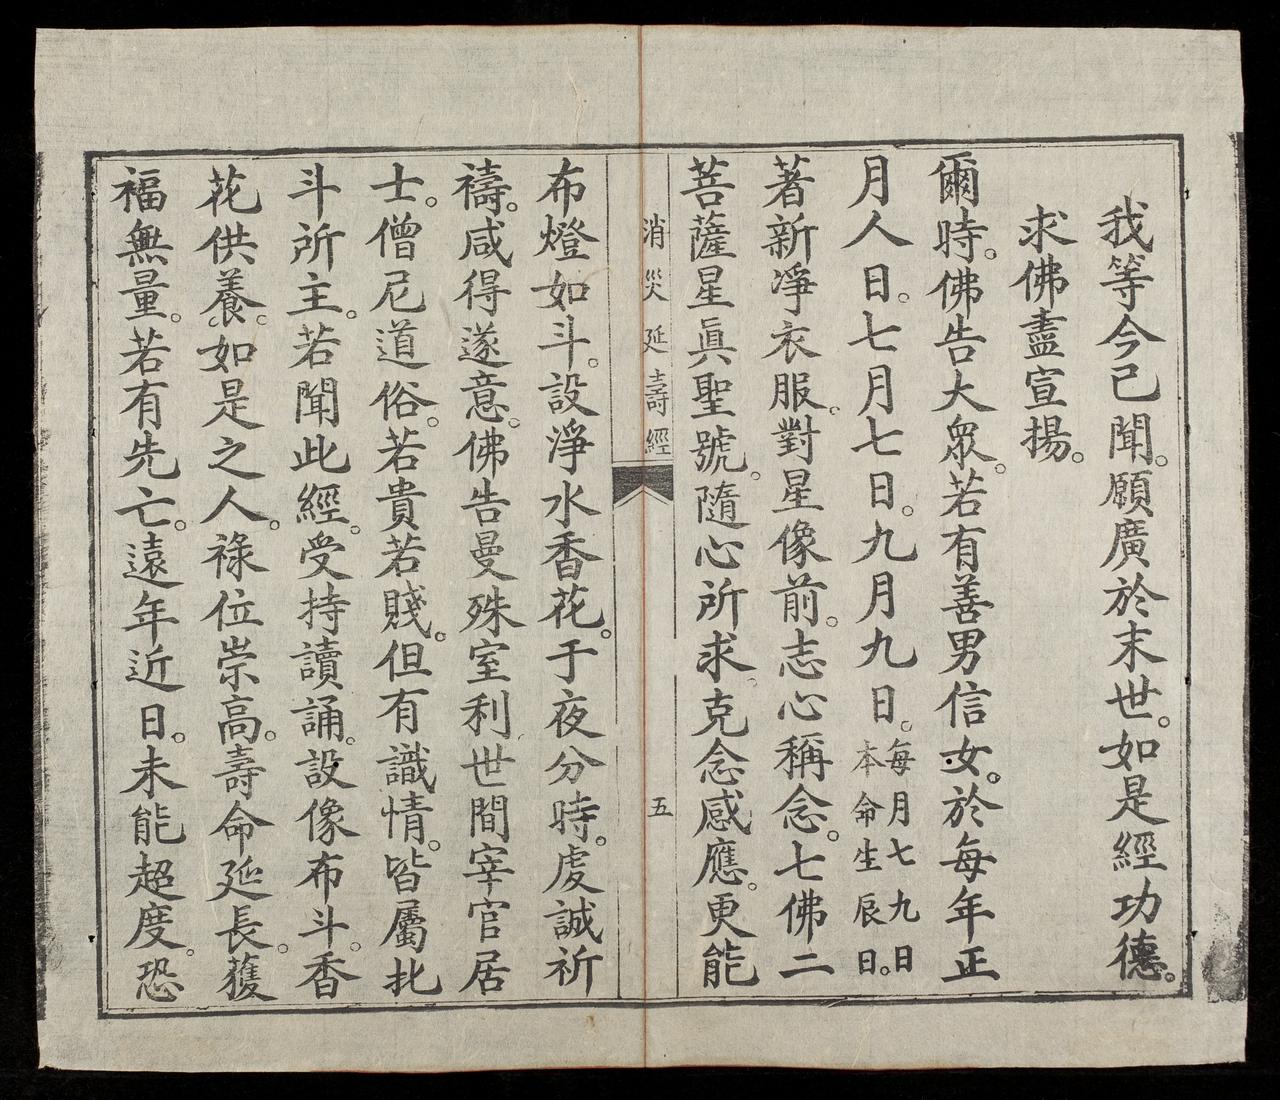 我等今已聞。願廣於末世。如是經功德。
求佛盡宣揚。
爾時。佛告大衆。若有善男信女。於每年正
月人日。七月七日。九月九日。每月七九日
本命生辰日。
著新淨衣服。對星像前。志心稱念。七佛二
菩薩星眞聖號。隨心所求。克念感應。更能
消災延壽經
五
布燈如斗。設淨水香花。于夜分時。虔誠祈
禱。咸得遂意。佛告曼殊室利。世間宰官居
士。僧尼道俗。若貴若賤。但有識情。皆屬北
斗所主。若聞此經。受持讀誦。設像布斗。香
花供養。如是之人。祿位崇高。壽命延長。獲
福無量。若有先亡。遠年近日。未能超度。恐